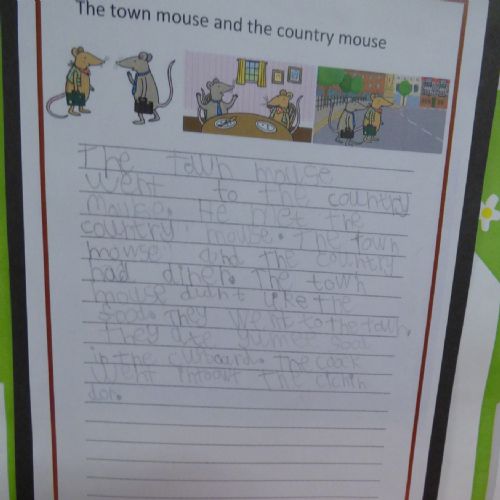 The town mouse and the country mouse
The town mouse
went to the country
mouse. He met the
country mouse. The town
mowse and the country
had diner. The town
mouse didn't like the
food. They went to the town.
They ate yumee food
in the cuboard. The cook
went the
dor.